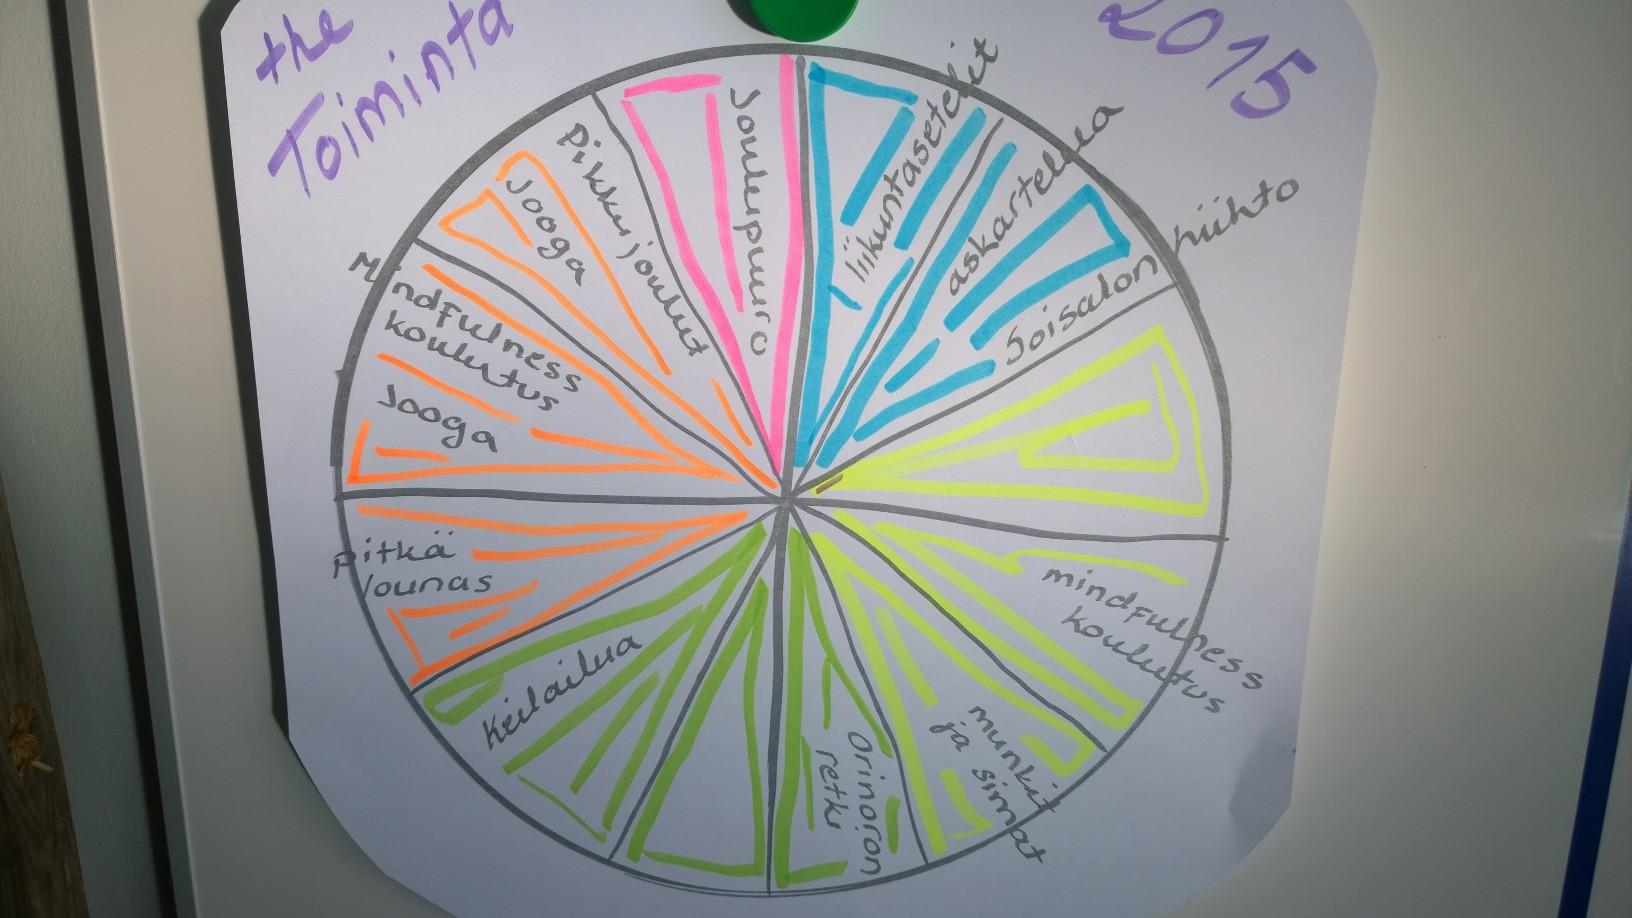 the
Toiminta
2015
liikuntasetelit
askartelua
Soisalon hiihto
mindfulness
koulutus
munkit
ja simat
Orinoron
retki
Keilailua
pitkä
lounas
Jooga
Mindfulness
koulutus
Jooga
Pikkujoulut
Joulupuuro